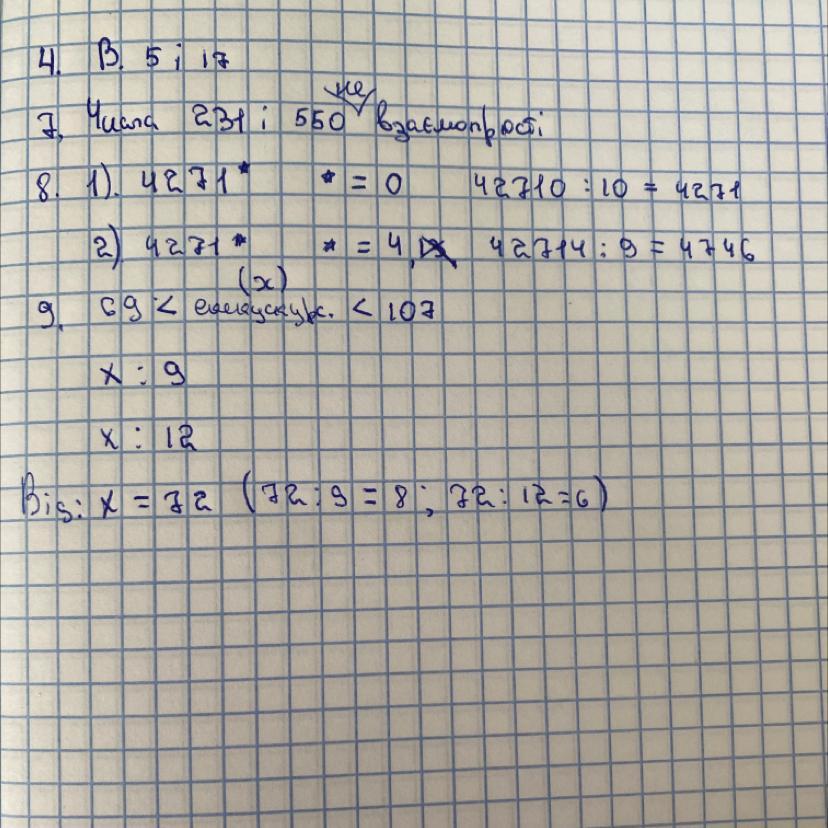 4. В. 5 і 17
7. Числа 231 і 550 не взаємопрості
8. 1). 4271* * = 0 42710 : 10 = 4271
2) 4271* * = 4, 42714 : 9 = 4746
(х)
9. 69 < екскурс. < 107
х : 9
х : 12
Від: х = 72 (72 : 9 = 8; 72 : 12 = 6)